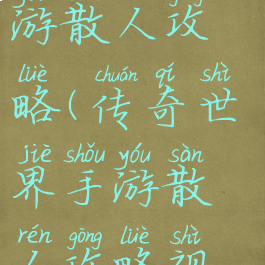 游散人攻
lüè chuán qí shì
略(传奇世
jiè shǒu yóu sàn
界手游散
rén gōng lüè shì